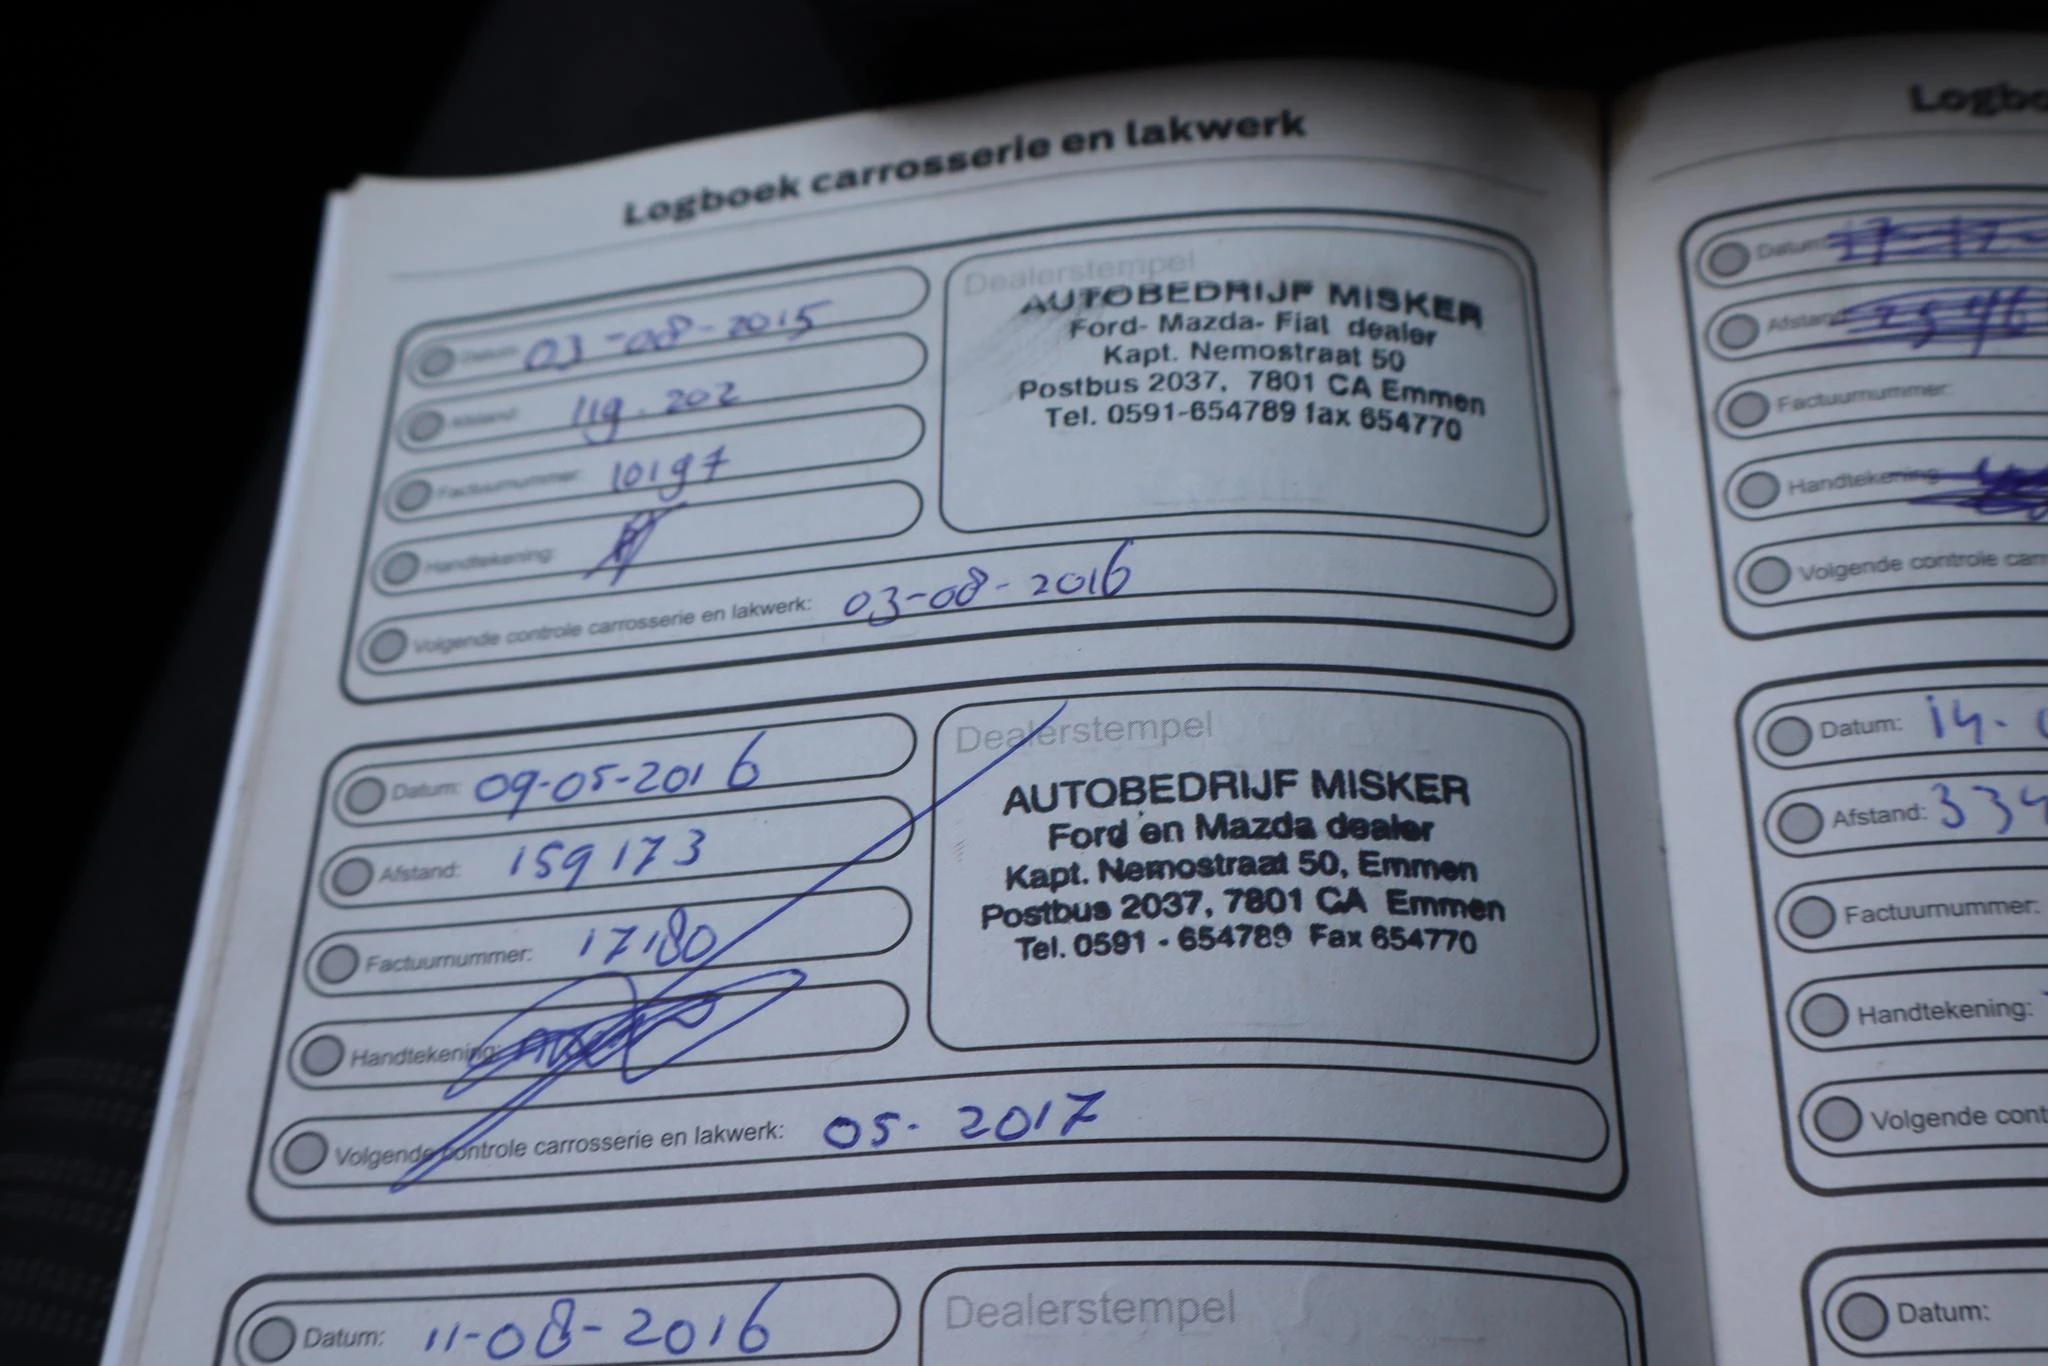 Logboek carrosserie en lakwerk
Datum: 03-08-2015
Afstand: 119.202
Factuurnummer: 10197
Handtekening:
Volgende controle carrosserie en lakwerk: 03-08-2016
Dealerstempel
AUTOBEDRIJF MISKER
Ford- Mazda- Fiat dealer
Kapt. Nemostraat 50
Postbus 2037, 7801 CA Emmen
Tel. 0591-654789 fax 654770
Datum: 09-05-2016
Afstand: 159173
Factuurnummer: 17180
Handtekening:
Volgende controle carrosserie en lakwerk: 05-2017
Dealerstempel
AUTOBEDRIJF MISKER
Ford en Mazda dealer
Kapt. Nemostraat 50, Emmen
Postbus 2037, 7801 CA Emmen
Tel. 0591 - 654789 Fax 654770
Datum: 11-08-2016
Dealerstempel
Logbo
Datum:
Afstand:
Factuurnummer:
Handtekening:
Volgende controle carr
Datum: 14-
Afstand: 334
Factuurnummer:
Handtekening:
Volgende cont
Datum: